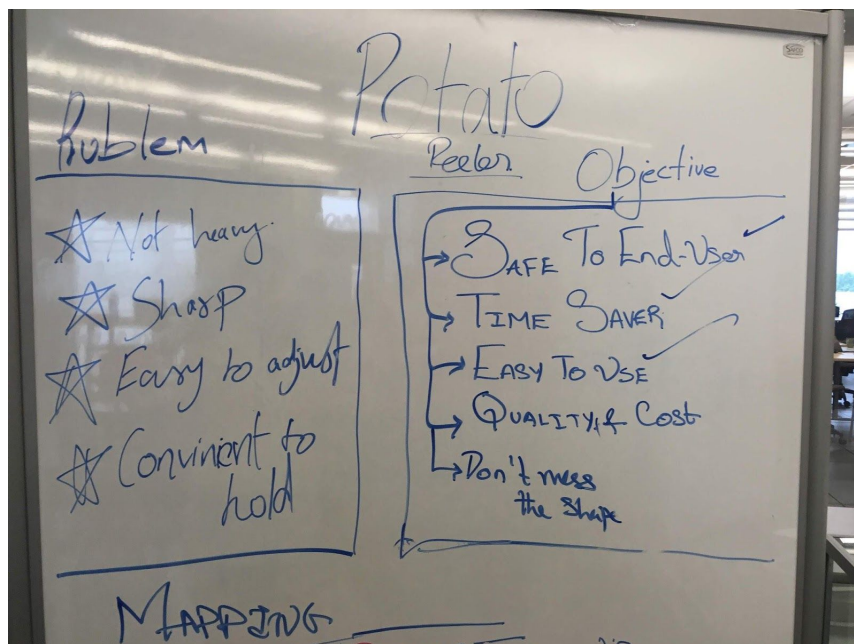 Potato
Peeler
Problem
Not heavy.
Sharp
Easy to adjust
Convinient to
hold
Objective
SAFE To End-User
TIME SAVER
EASY TO USE
QUALITY & COST
Don't mess
the shape
MAPPING